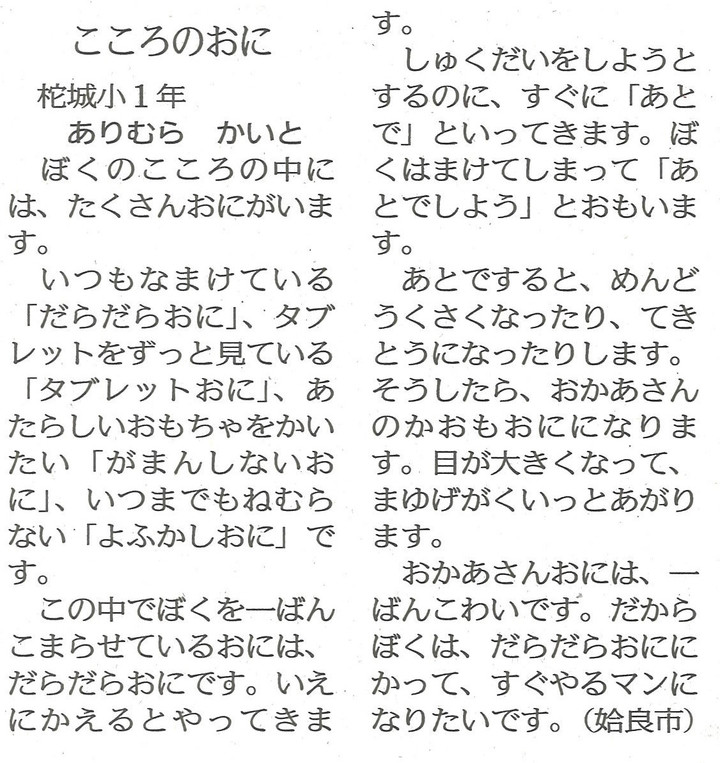 こころのおに
柁城小１年
ありむら　かいと
ぼくのこころの中に
は、たくさんおにがいま
す。
いつもなまけている
「だらだらおに」、タブ
レットをずっと見ている
「タブレットおに」、あ
たらしいおもちゃをかい
たい「がまんしないお
に」、いつまでもねむら
ない「よふかしおに」で
す。
この中でぼくを一ばん
こまらせているおには、
だらだらおにです。いえ
にかえるとやってきま
す。
しゅくだいをしようと
するのに、すぐに「あと
で」といってきます。ぼ
くはまけてしまって「あ
とでしよう」とおもいま
す。
あとですると、めんど
うくさくなったり、てき
とうになったりします。
そうしたら、おかあさん
のかおもおにになりま
す。目が大きくなって、
まゆげがくいっとあがり
ます。
おかあさんおには、一
ばんこわいです。だから
ぼくは、だらだらおにに
かって、すぐやるマンに
なりたいです。（姶良市）